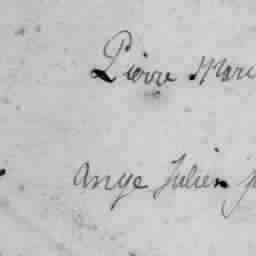 Pierre Mari
Ange Julien